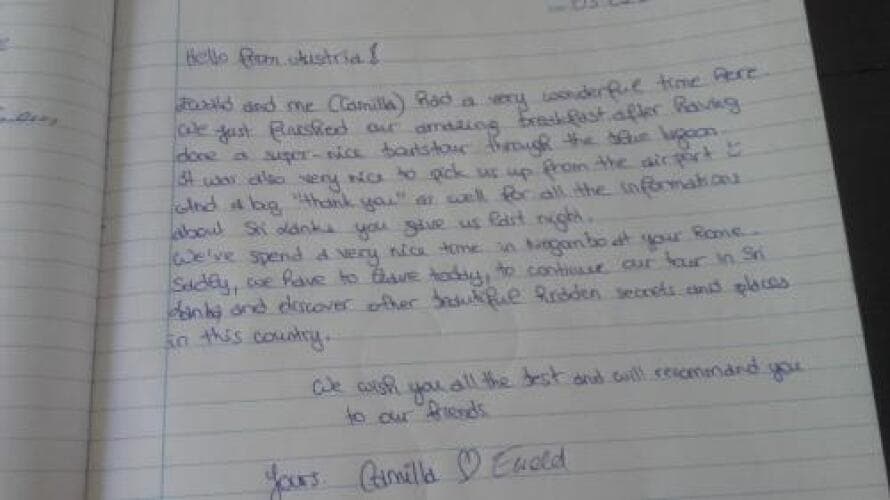 Hello from Austria!
Ewald and me (Camilla) had a very wonderful time here.
We just finished our amazing breakfast after having
done a super-nice boatstour through the blue lagoon.
It was also very nice to pick us up from the airport :)
And a big "thank you" as well for all the informations
about Sri Lanka you gave us last night.
We've spend a very nice time in Nogambo at your home.
Sadely, we have to leave today, to continue our tour in Sri
Lanka and discover other beautiful hidden secrets and places
in this country.
We wish you all the best and will recommand you
to our friends
Yours. Camilla ♡ Ewald